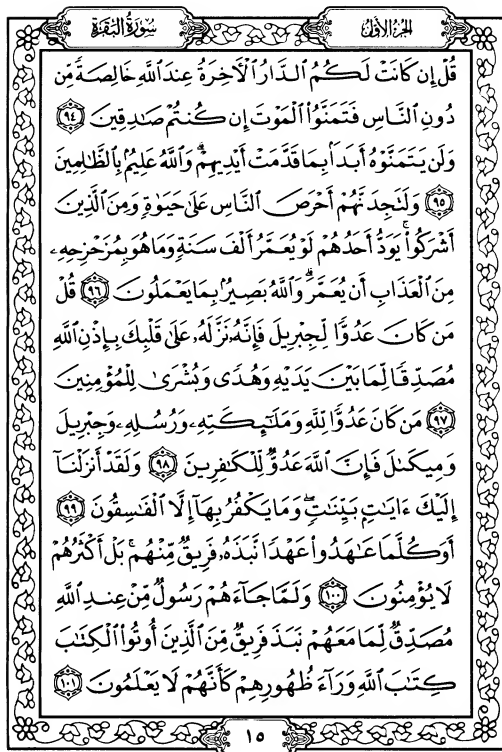 الجزء الأول
سورة البقرة
قُلْ إِن كَانَتْ لَكُمُ الدَّارُ الْآخِرَةُ عِندَ اللَّهِ خَالِصَةً مِّن
دُونِ النَّاسِ فَتَمَنَّوُا الْمَوْتَ إِن كُنتُمْ صَادِقِينَ ﴿٩٤﴾
وَلَن يَتَمَنَّوْهُ أَبَدًا بِمَا قَدَّمَتْ أَيْدِيهِمْ ۗ وَاللَّهُ عَلِيمٌ بِالظَّالِمِينَ
﴿٩٥﴾ وَلَتَجِدَنَّهُمْ أَحْرَصَ النَّاسِ عَلَىٰ حَيَوٰةٍ وَمِنَ الَّذِينَ
أَشْرَكُوا ۚ يَوَدُّ أَحَدُهُمْ لَوْ يُعَمَّرُ أَلْفَ سَنَةٍ وَمَا هُوَ بِمُزَحْزِحِهِۦ
مِنَ الْعَذَابِ أَن يُعَمَّرَ ۗ وَاللَّهُ بَصِيرٌ بِمَا يَعْمَلُونَ ﴿٩٦﴾ قُلْ
مَن كَانَ عَدُوًّا لِّجِبْرِيلَ فَإِنَّهُۥ نَزَّلَهُۥ عَلَىٰ قَلْبِكَ بِإِذْنِ اللَّهِ
مُصَدِّقًا لِّمَا بَيْنَ يَدَيْهِ وَهُدًى وَبُشْرَىٰ لِلْمُؤْمِنِينَ
﴿٩٧﴾ مَن كَانَ عَدُوًّا لِّلَّهِ وَمَلَٰٓئِكَتِهِۦ وَرُسُلِهِۦ وَجِبْرِيلَ
وَمِيكَىٰلَ فَإِنَّ اللَّهَ عَدُوٌّ لِّلْكَٰفِرِينَ ﴿٩٨﴾ وَلَقَدْ أَنزَلْنَآ
إِلَيْكَ ءَايَٰتٍۭ بَيِّنَٰتٍ ۖ وَمَا يَكْفُرُ بِهَآ إِلَّا الْفَٰسِقُونَ ﴿٩٩﴾
أَوَكُلَّمَا عَٰهَدُوا عَهْدًا نَّبَذَهُۥ فَرِيقٌ مِّنْهُم ۚ بَلْ أَكْثَرُهُمْ
لَا يُؤْمِنُونَ ﴿١٠٠﴾ وَلَمَّا جَآءَهُمْ رَسُولٌ مِّنْ عِندِ اللَّهِ
مُصَدِّقٌ لِّمَا مَعَهُمْ نَبَذَ فَرِيقٌ مِّنَ الَّذِينَ أُوتُوا الْكِتَٰبَ
كِتَٰبَ اللَّهِ وَرَآءَ ظُهُورِهِمْ كَأَنَّهُمْ لَا يَعْلَمُونَ ﴿١٠١﴾
١٥